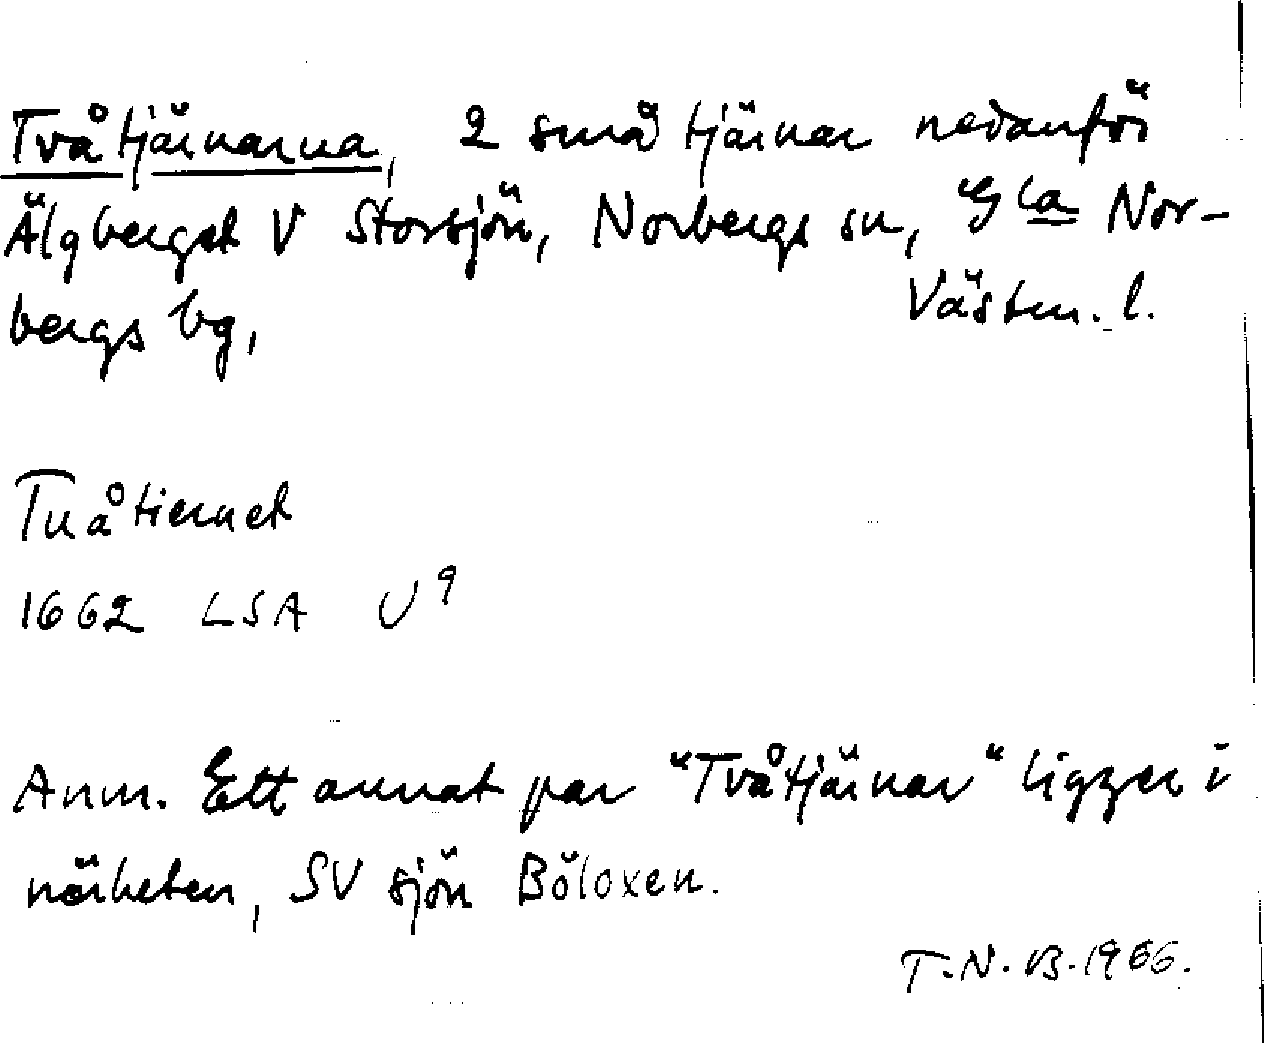 Tvåtjärnarna, 2 små tjärnar nedanför
Älgberget V Storsjön, Norbergs sn, Gla Nor-
bergs bg, Västm. l.
Tuåtiernet
1662 LSA U⁹
Anm. Ett annat par "Tvåtjärnar" ligger i
närheten, SV sjön Böloxen.
T.N.B. 1966.